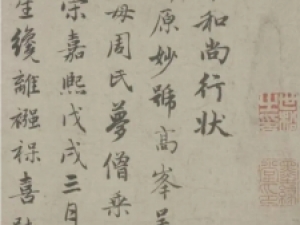 和尚行状
原妙號高峯吳
母周氏夢僧乘
宗嘉熙戊戌三月
生纔離襁褓喜趺